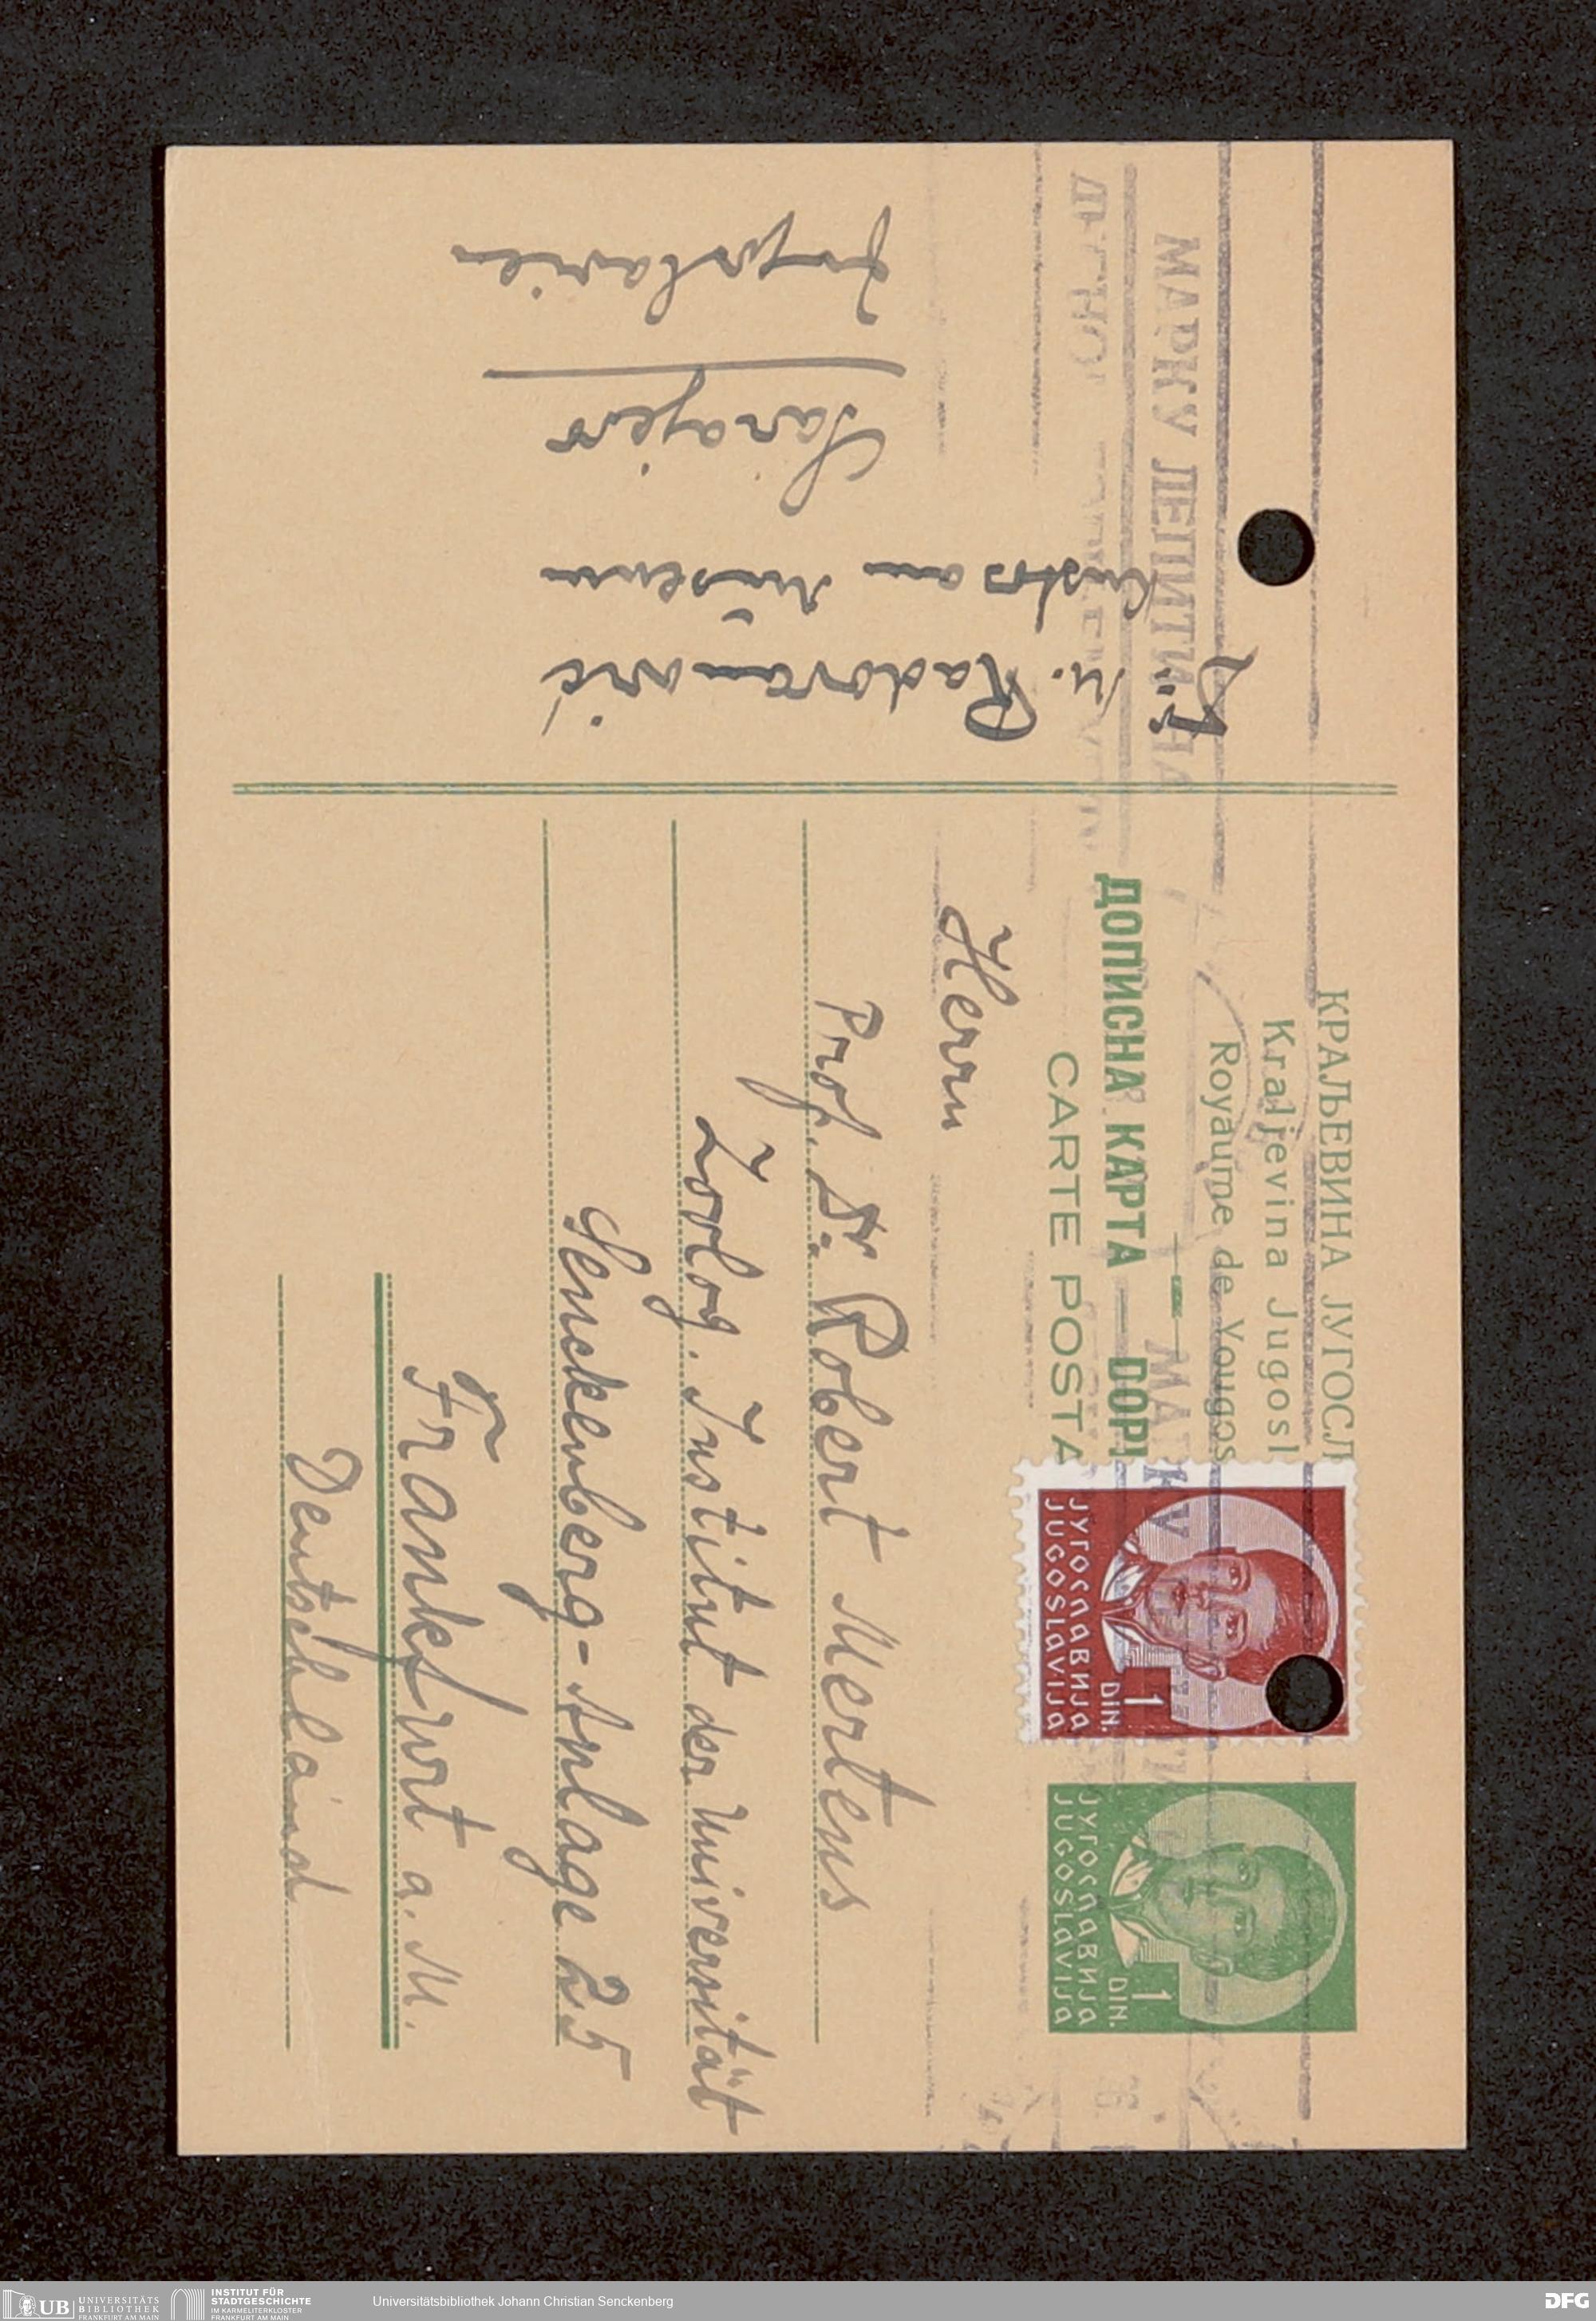 КРАЉЕВИНА ЈУГОСЛ
Kraljevina Jugosl
Royaume de Yougos
ДОПИСНА КАРТА — DOPI
CARTE POSTA
ЈУГОСЛАВИЈА
JUGOSLAVIJA
1
DIN.
ЈУГОСЛАВИЈА
JUGOSLAVIJA
1
DIN.
МАРКУ ЛЕПИТИ НА
МАРКУ
Herrn
Prof. Dr. Robert Mertens
Zoolog. Institut der Universität
Senckenberg-Anlage 25
Frankfurt a. M.
Deutschland
Dr. M. Radovanović
Custos am Museum
Sarajevo
Jugoslavien
UB UNIVERSITÄTS
BIBLIOTHEK
FRANKFURT AM MAIN
INSTITUT FÜR
STADTGESCHICHTE
IM KARMELITERKLOSTER
FRANKFURT AM MAIN
Universitätsbibliothek Johann Christian Senckenberg
DFG